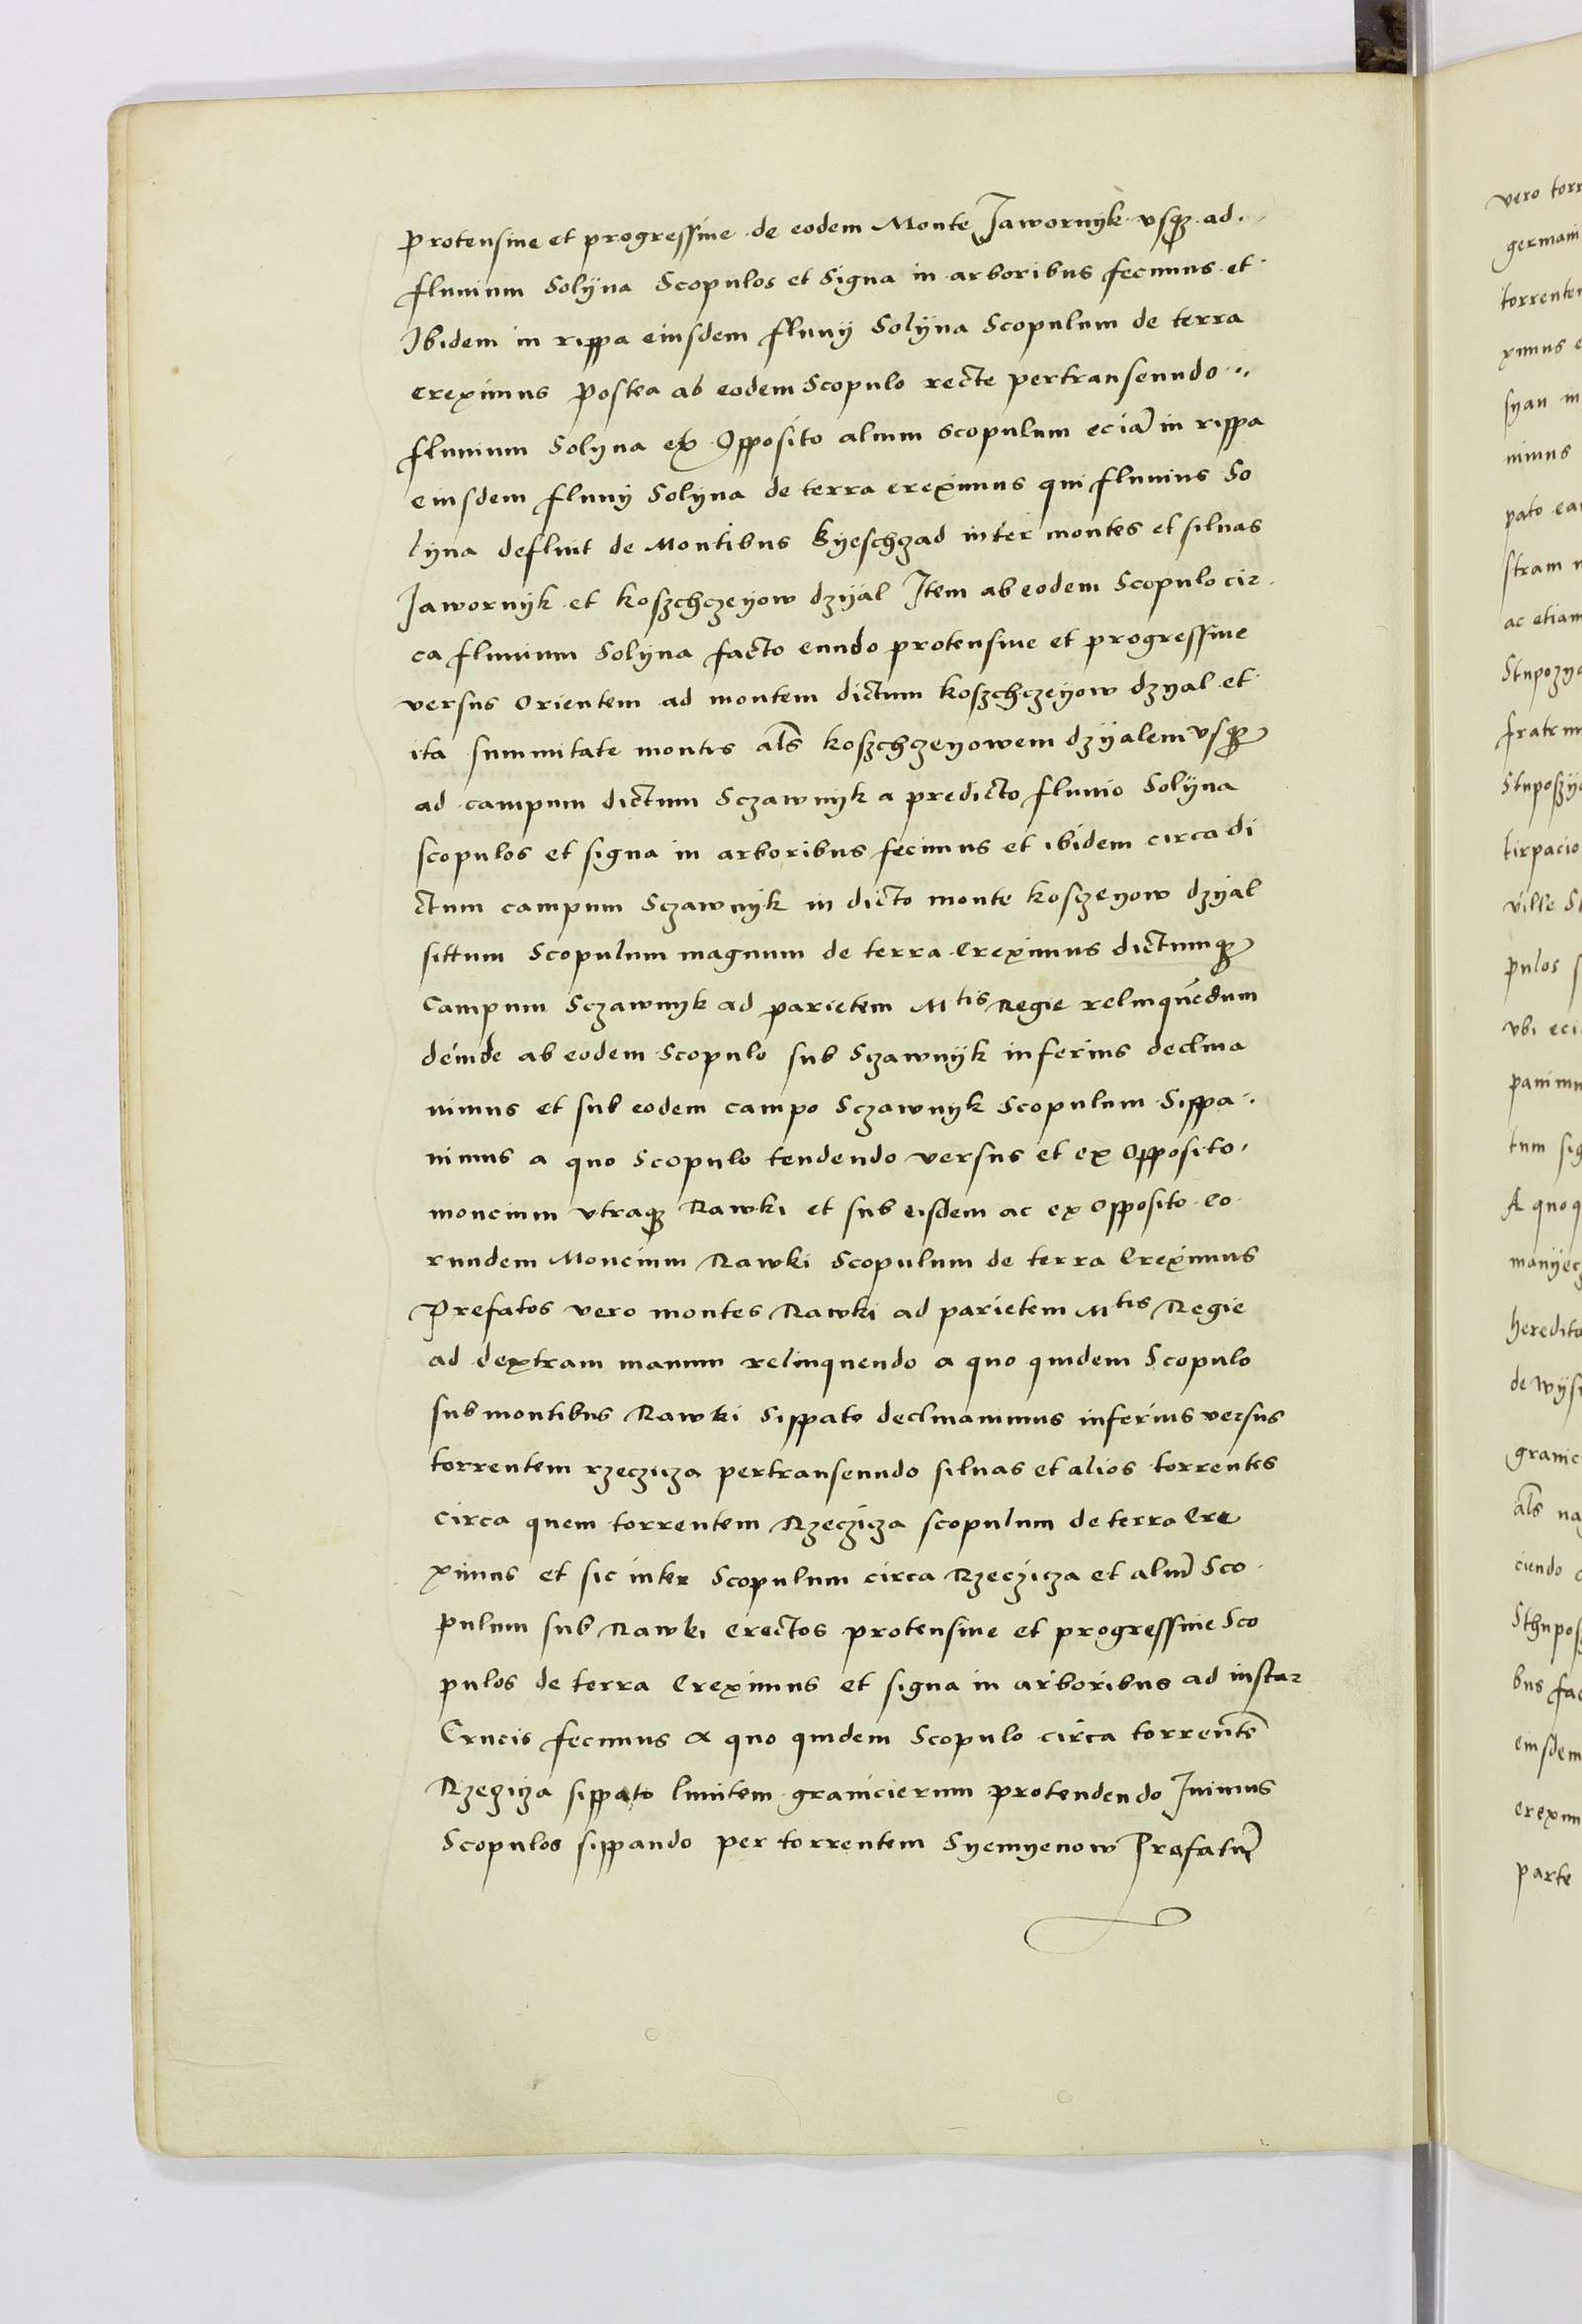 Protensiue et progressiue de eodem Monte Jawornyk vsqȝ ad
fluuium Solyna Scopulos et Signa in arboribus fecimus et
Ibidem in rippa eiusdem fluuy Solyna Scopulum de terra
ereximus Postea ab eodem Scopulo recte pertranseundo
fluuium Solyna ex Opposito alium scopulum eciā in rippa
eiusdem fluuy Solyna de terra ereximus qui fluuius So
lyna defluit de Montibus Byeschzad inter montes et siluas
Jawornyk et koszchczeyow dzyal Item ab eodem Scopulo cir
ca fluuium Solyna facto eundo protensiue et progressiue
versus Orientem ad montem dictum koszchczeyow dzyal et
ita summitate montis als koszchczeyowem dzyalem vsqȝ
ad campum dictum Sczawnyk a predicto fluuio Solyna
scopulos et signa in arboribus fecimus et ibidem circa di
ctum campum Sczawnyk in dicto monte kosczeyow dzyal
sittum Scopulum magnum de terra Ereximus dictumqȝ
Campum Sczawnyk ad parietem Mtis Regie relinquēdum
deinde ab eodem Scopulo sub Sczawnyk inferius declina
uimus et sub eodem campo Sczawnyk Scopulum Sippa
uimus a quo Scopulo tendendo versus et ex Opposito
moncium vtraqȝ Rawki et sub eisdem ac ex Opposito Eo
rundem Moncium Rawki Scopulum de terra Ereximus
Prefatos vero montes Rawki ad parietem Mtis Regie
ad dextram manum relinquendo a quo quidem Scopulo
sub montibus Rawki Sippato declinauimus inferius versus
torrentem rzeczicza pertranseundo siluas et alios torrentes
circa quem torrentem Rzeczicza scopulum de terra Ere
ximus et sic inter Scopulum circa Rzeczicza et aliū Sco
pulum sub Rawki erectos protensiue et progressiue Sco
pulos de terra Ereximus et signa in arboribus ad instar
Crucis fecimus A quo quidem Scopulo circa torrentē
Rzeczicza sippato limitem granicierum protendendo Iuimus
Scopulos sippando per torrentem Syemyenow Prefatū
vero torr
germani
torrenten
ximus e
syan in
uimus
pato ea
stram
ac etiam
fratrum
tirpacio
ville St
pulos
vbi eci
tum sig
A quo q
heredita
granic
als na
ciendo
Sthupos
bus fac
eiusdem
erexim
parte